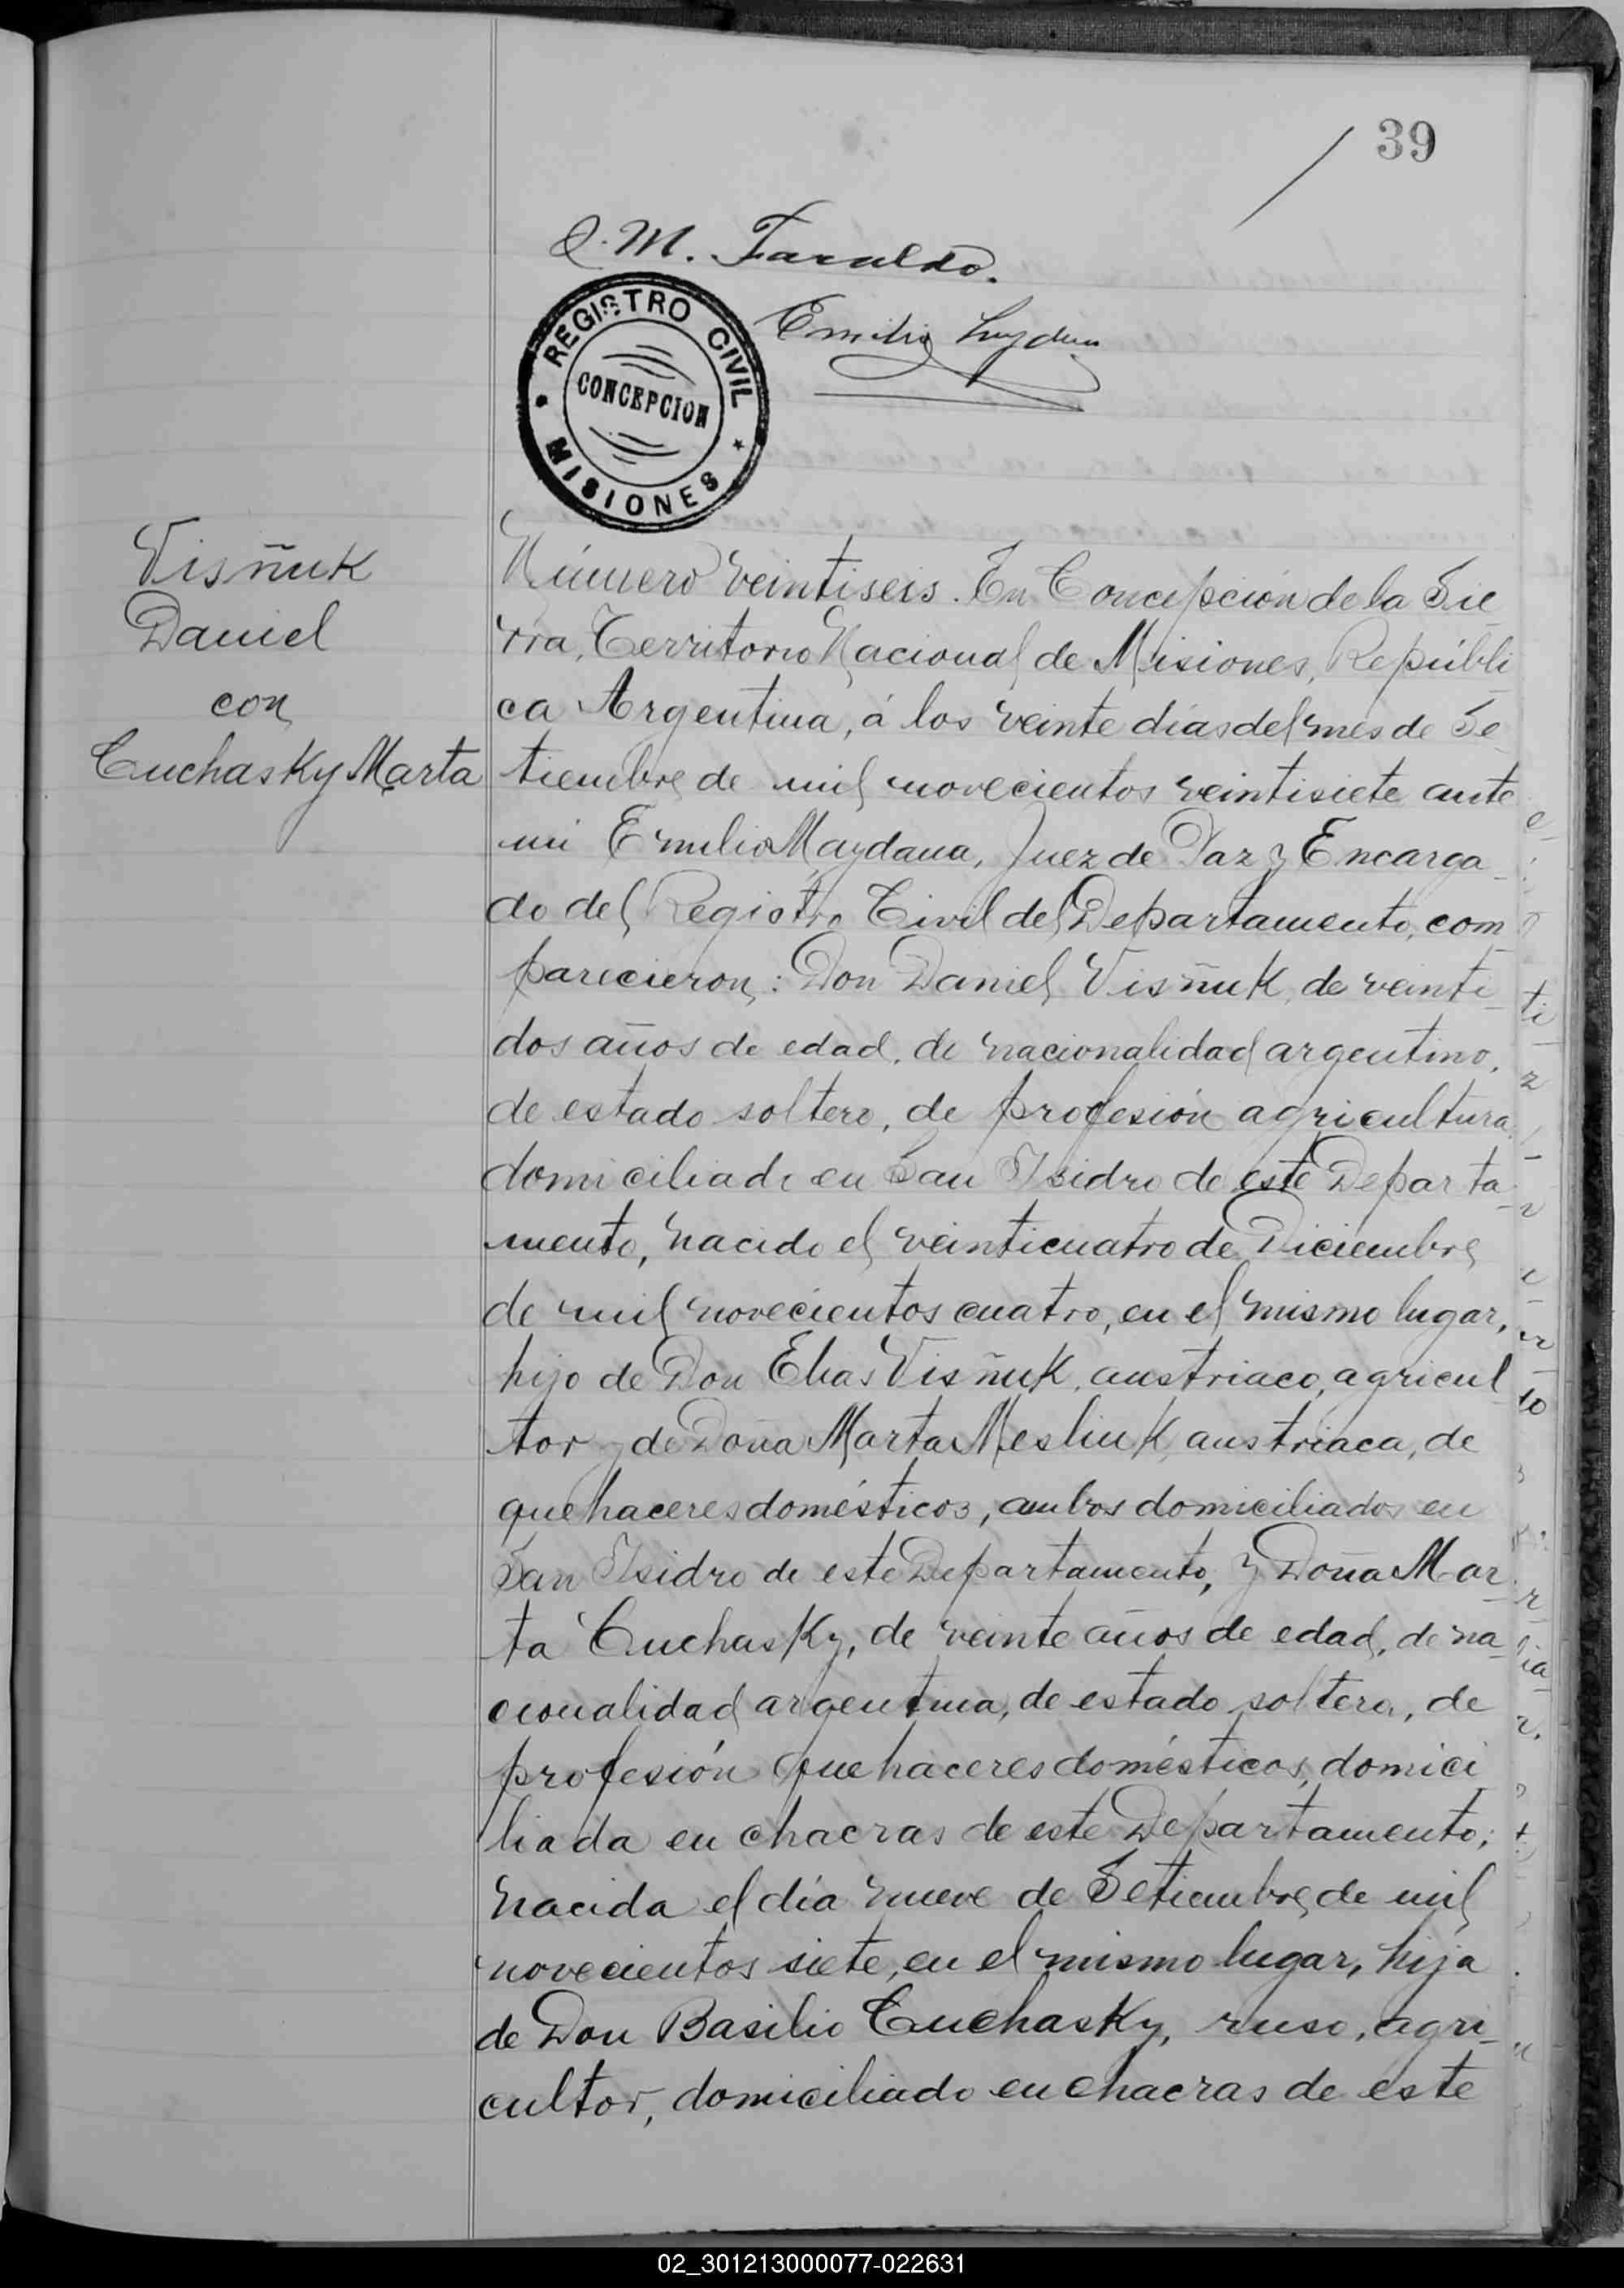 39
Q. M. Faraldo.
Emilio
REGISTRO CIVIL
CONCEPCION
MISIONES
Visñuk
Daniel
con
Cuchasky Marta
Número veintiseis. En Concepción de la Sie
rra, Territorio Nacional de Misiones, Repúbli
ca Argentina, á los veinte días del mes de Se
tiembre de mil novecientos veintisiete ante
mi Emilio Maydana, Juez de Paz y Encarga
do del Registro Civil del Departamento, com
parecieron: Don Daniel Visñuk, de veinti
dos años de edad, de nacionalidad argentino,
de estado soltero, de profesión agricultura
domiciliado en San Isidro de este Departa
mento, nacido el veinticuatro de Diciembre
de mil novecientos cuatro, en el mismo lugar,
hijo de Don Elias Visñuk, austriaco, agricul
tor y de Doña Marta Mesliuk, austriaca, de
quehaceres domésticos, ambos domiciliados en
San Isidro de este Departamento, y Doña Mar
ta Cuchasky, de veinte años de edad, de na
cionalidad argentina, de estado soltera, de
profesión quehaceres domésticos, domici
liada en chacras de este Departamento;
nacida el día nueve de Setiembre de mil
novecientos siete, en el mismo lugar, hija
de Don Basilio Cuchasky, ruso, agri
cultor, domiciliado en chacras de este
02_301213000077-022631